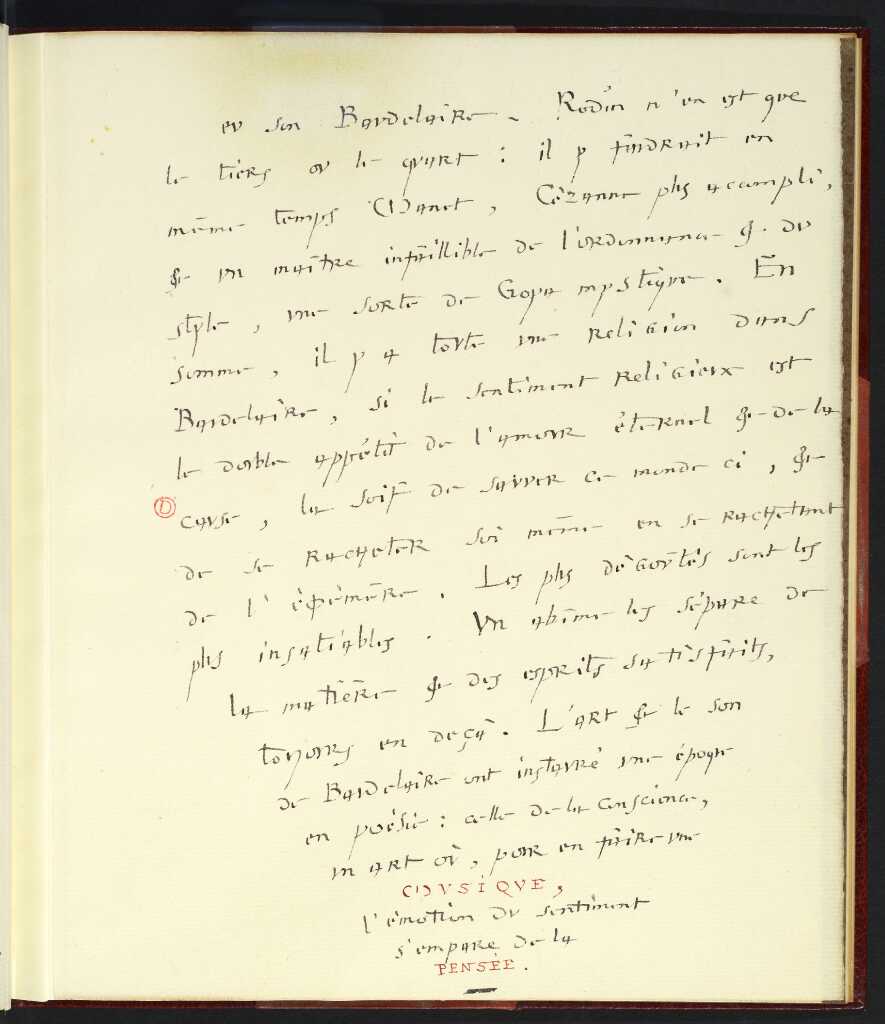 eu son Baudelaire. Rodin n'en est que
le tiers ou le quart : il y faudrait en
même temps Manet, Cézanne plus accompli,
& un maître infaillible de l'ordonnance & du
style, une sorte de Goya mystique. En
somme, il y a toute une religion dans
Baudelaire, si le sentiment religieux est
le double appétit de l'amour éternel & de la
cause, la soif de sauver ce monde ci, &
de se racheter soi même en se rachetant
de l'éphémère. Les plus dégoûtés sont les
plus insatiables. Un abîme les sépare de
la matière & des esprits satisfaits,
toujours en deçà. L'art & le son
de Baudelaire ont instauré une époque
en poésie : celle de la conscience,
un art où, pour en faire une
MUSIQUE,
l'émotion du sentiment
s'empare de la
PENSÉE.